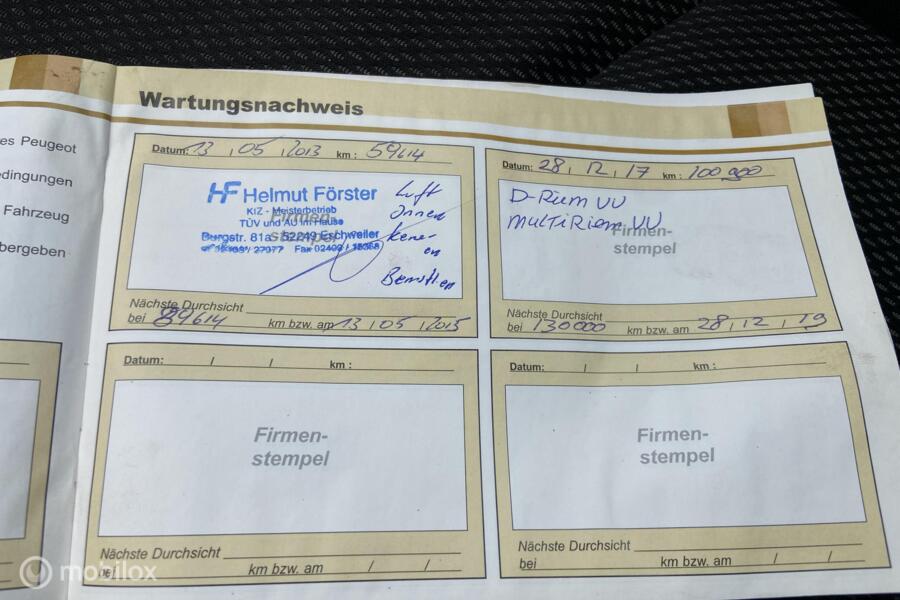 es Peugeot
edingungen
Fahrzeug
bergeben
Wartungsnachweis
Datum: 13 . 05 . 2013 km : 59614
HF Helmut Förster
KfZ - Meisterbetrieb
TÜV und AU im Hause
Burgstr. 81a 52249 Eschweiler
Firmen-
stempel
Luft
Innen
en
Nächste Durchsicht
bei 89614 km bzw. am 13 / 05 / 2015
Datum: 28 , 12 , 17 km : 100900
D-Riem VV
MULTiRiem VV
Firmen-
stempel
Nächste Durchsicht
bei 130000 km bzw. am 28 / 12 / 19
Datum: / / km :
Firmen-
stempel
Nächste Durchsicht
bei km bzw. am / /
Datum: / / km :
Firmen-
stempel
Nächste Durchsicht
bei km bzw. am / /
mobilox